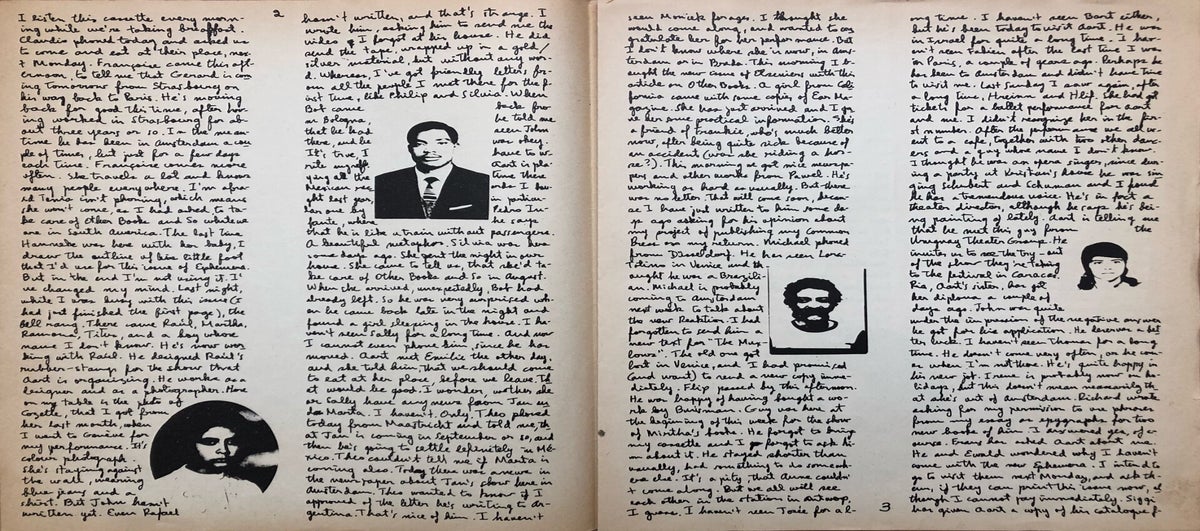 I listen this cassette every morn-
ing while we're taking breakfast.
Claudio phoned today and asked us
to come and eat at their place, nex-
t Monday. Françoise came this aft-
ernoon, to tell me that Gerard is com
ing tomorrow from Strasbourg on
his way back to Paris. He's moving
back for good this time, after hav-
ing worked in Strasbourg for ab-
out three years or so. In the mean-
time he has been in Amsterdam a cou
ple of times, but just for a few days
each time. Françoise comes more
often. She travels a lot and knows
many people everywhere. I'm afra-
id Tania isn't phoning, which means
she won't come, as I had asked to ta-
ke care of Other Books and So whilewe
are in South America. The last time
Hannabe was here with her baby, I
draw the outline of his little foot
that I'd use for this issue of Ephemera.
But in the end I'm not using it. I'
ve changed my mind. Last night,
while I was busy with this issue (I
had just finished the first page), the
bell rang. There came Raúl, Martha,
Ramona, Titus, and a boy whose
name I don't know. He's now wor
king with Raúl. He designed Raúl's
rubber-stamp for the show that
Aart is organizing. He works as a
designer and as a photographer. Here
on my table is the photo of
Cozette, that I got from
her last month, when
I went to Genève for
my performance. It's
colour photograph.
she's staying against
the wall, wearing
blue jeans and a
shirt. But John hasn't
written yet. Even Rafael
2
hasn't written, and that's strange. I
wrote him, asking him to send me the
video I forgot at his house. He did
send the tape, wrapped up in a gold/
silver material, but without any wor-
d. Whereas, I've got friendly letters fr-
om all the people I met there for the f-
irst time, like Philip and Silvia. When
Bot came back fro
m Bologna, he told me
that he had seen John
there, and he was okay.
It's true, I have to w-
rite myself. Aart is pla-
ying all the time these
Mexican rec ords I bou
ght last year,
her one by Pedro In-
fante, where he says
that he is like a train without passengers.
A beautiful metaphor. Silvia was here
some days ago. She spent the night in our
house. She came to tell us, that she'd ta-
ke care of Other Books and So in August.
When she arrived, unexpectedly, Bot had
already left. So he was very surprised wh-
en he came back late in the night and
found a girl sleeping in the house. I ha-
ven't seen Sally for a long time. And now
I cannot even phone him, since he has
moved. Aart met Emilie the other day,
and she told him that we should come
to eat at her place, before we leave. Th
at would be good. I wonder, whether she
or Sally have any news from Jan an
d Manta. I haven't. Only, Theo phoned
today from Maastricht and told me, th
at Jan is coming in September or so, and
then he's going to settle definitely in Mé-
xico. Theo couldn't tell me if Manta is
coming also. Today there was a review in
the newspaper about Jan's show here in
Amsterdam. Theo wanted to know if I
approved of the letter he's writing to Ar-
gentina. That's nice of him. I haven't
seen Monick for ages. I thought she
would come along, and wanted to con
gratulate her for her performance. But
I don't know where she is now, in Ams-
terdam or in Breda. This morning I b-
ought the new issue of with this
article on Other Books. A girl from Cali
fornia came with some copies of Ear Ma-
gazine. She has just arrived and I ga
ve her some practical information. She's
a friend of Frankie, who's much better
now, after being quite sick because of
an accident (was she riding a hor-
se?). This morning I got nice newspa-
pers and other works from Pawel. He's
working as hard as usually. But there
was no letter. That will come soon, becau-
se I have just written to him some da
ys ago asking for his opinion about
my project of publishing my Common
Press on my return. Michael phoned
from Düsseldorf. He has seen Lore-
Telina in Venice and th
ought he was a Brazili
an. Michael is probably
coming to Amsterdam
next week to talk about
the new Reaktion. I had
forgotten to send him a
new text for "The Muy
lows". The old one got
lost in Venice, and I had promised
(and want) to send a new copy imm-
diately. Flip passed by this afternoon.
He was happy of having bought a wo-
rk by Buisman. Guy was here at
the beginning of this week for the show
of Mirtha's books. He forgot to bring
my cassette and I forgot to ask hi-
m about it. He stayed shorter than
usually, had something to do somewh-
ere else. It's a pity, that Anne couldn'
t come along. But we all will see
each other in the station in Antwerp,
I guess. I haven't seen for a l-
3
ong time. I haven't seen Bart either,
but he's been today to visit Aart. He was
in Israel for quite a long time. I hav-
en't seen Fabien, after the last time I was
in Paris, a couple of years ago. Perhaps he
has been to Amsterdam and didn't have time
to visit me. Last Sunday I saw again, after
a long time, Hreinn and Hlíf. She had got
tickets for a ballet performance for Aart
and me. I didn't recognize her in the fir-
st number. After the performance we all w-
ent to a café, together with two other dan-
cers and a guy whose name I don't know.
I thought he was an opera singer, since dur-
ing a party at Kristján's house he was sin
ging Schubert and Schuman and I found
he has a tremendous voice. He's in fact a
theater director, although he says he's be-
ing painting of lately. Aart is telling me
that he met this guy from the
Uruguay Theater Group. He
invites us to see the try-out
of the show they're taking
to the festival in Caracas.
Ria, Aart's sister, has got
her diploma a couple of
days ago. John was quite
under the impression of the negative answer
he got for his application. He deserves a bet
ter luck. I haven't seen Thomas for a long
time. He doesn't come very often, or he com-
es when I'm not here. He's quite happy in
his new job. Irene is probably now in ho-
lidays, but this doesn't mean necessarily th
at she's out of Amsterdam. Richard wrote
asking for my permission to use phrases
from my essay as epygraphs for two
new books of him. I answered yes, of co-
urse. Frans has asked Aart about me.
He and Ewald wondered why I haven't
come with the new Ephemera. I intend to
go to visit them next Monday, and ask th-
em, if they can print this issue now, al-
though I cannot pay immediately. Siggi
has given Aart a copy of his catalogue f-